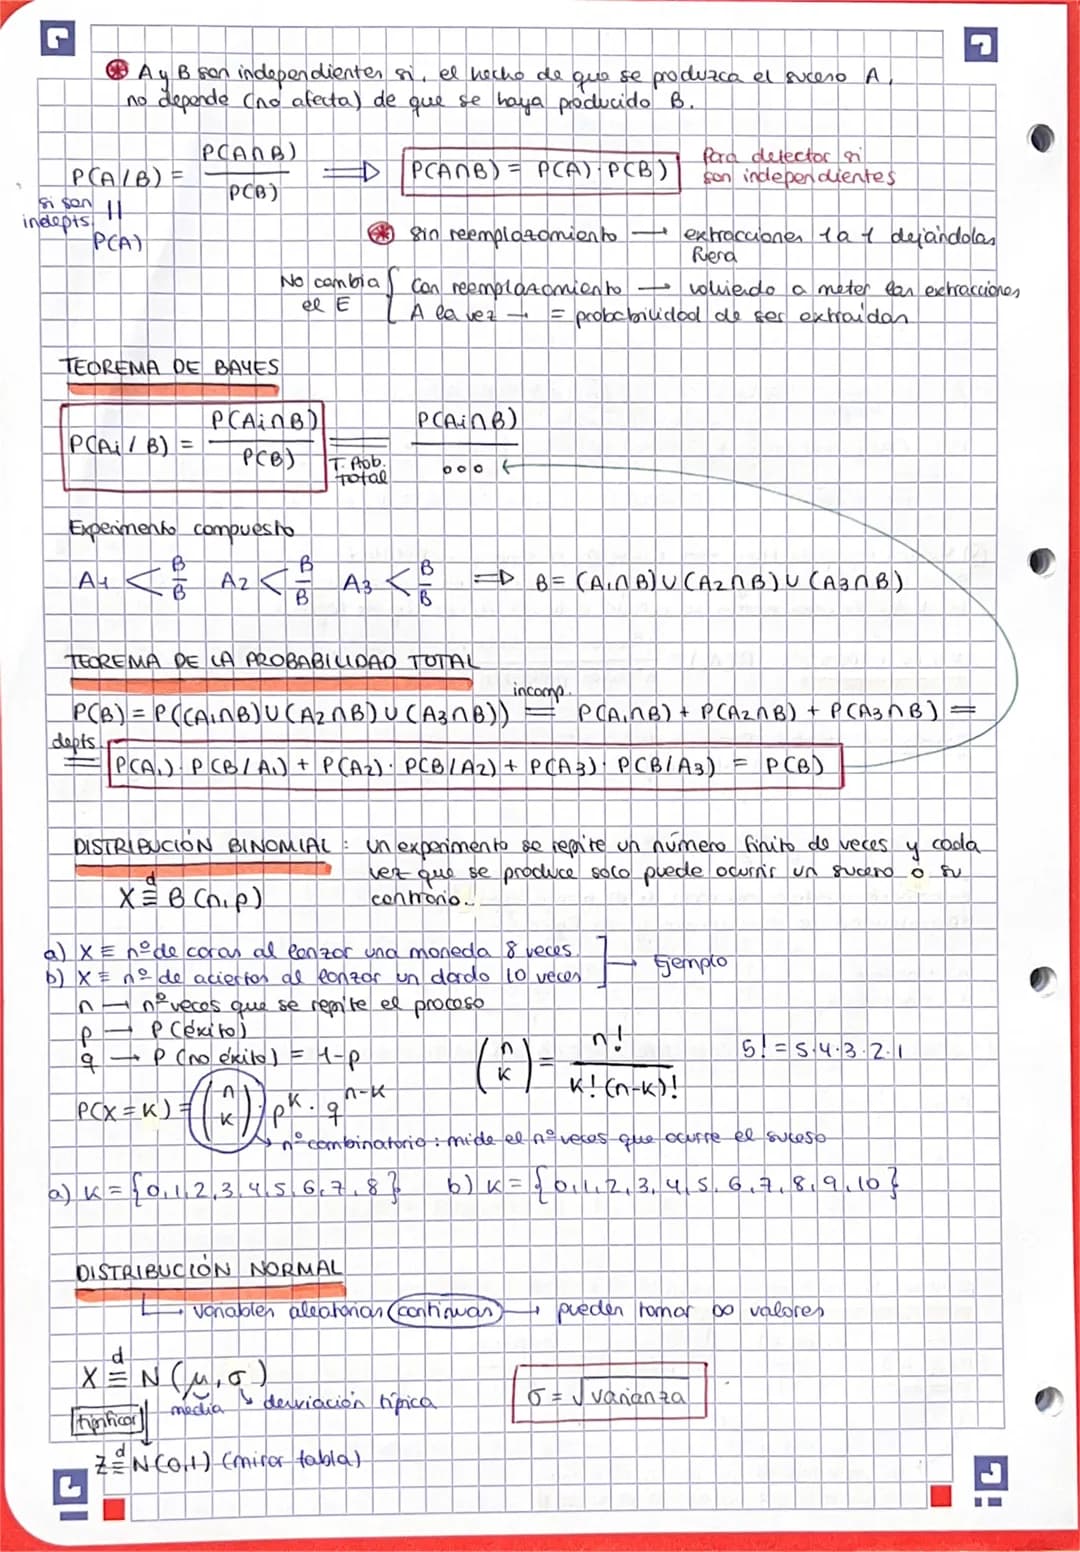 ⊛ A y B son independientes si, el hecho de que se produzca el suceso A,
no depende (no afecta) de que se haya producido B.
P(A/B) = P(A∩B) / P(B) ⟹ P(A∩B) = P(A)·P(B)
Para detectar si
son independientes
si son
indepts.
||
P(A)
⊛ Sin reemplazamiento → extracciones 1 a 1 dejándolas
fuera
No cambia
el E
Con reemplazamiento → volviendo a meter las extracciones
A la vez → = probabilidad de ser extraídas
TEOREMA DE BAYES
P(Ai/B) = P(Ai∩B) / P(B) = P(Ai∩B) / ∘∘∘
T. Prob.
Total
Experimento compuesto
A1 < B / B̅ A2 < B / B̅ A3 < B / B̅ ⟹ B = (A1∩B)∪(A2∩B)∪(A3∩B)
TEOREMA DE LA PROBABILIDAD TOTAL
incomp.
P(B) = P((A1∩B)∪(A2∩B)∪(A3∩B)) = P(A1∩B) + P(A2∩B) + P(A3∩B) =
depts.
= P(A1)·P(B/A1) + P(A2)·P(B/A2) + P(A3)·P(B/A3) = P(B)
DISTRIBUCIÓN BINOMIAL: un experimento se repite un número finito de veces y cada
vez que se produce solo puede ocurrir un suceso o su
contrario.
d
X ≡ B(n,p)
a) X ≡ nº de caras al lanzar una moneda 8 veces
b) X ≡ nº de aciertos al lanzar un dardo 10 veces
→ Ejemplo
n → nº veces que se repite el proceso
p → P(éxito)
q → P(no éxito) = 1-p
(n k) = n! / k!(n-k)!
5! = 5·4·3·2·1
P(X=K) = (n k) · p^K · q^n-K
→ nº combinatorio: mide el nº veces que ocurre el suceso
a) K = {0,1,2,3,4,5,6,7,8} b) K = {0,1,2,3,4,5,6,7,8,9,10}
DISTRIBUCIÓN NORMAL
→ variables aleatorias continuas → pueden tomar ∞ valores
d
X ≡ N(μ,σ)
media
desviación típica
σ = √varianza
tipificar
d
Z ≡ N(0,1) (mirar tabla)